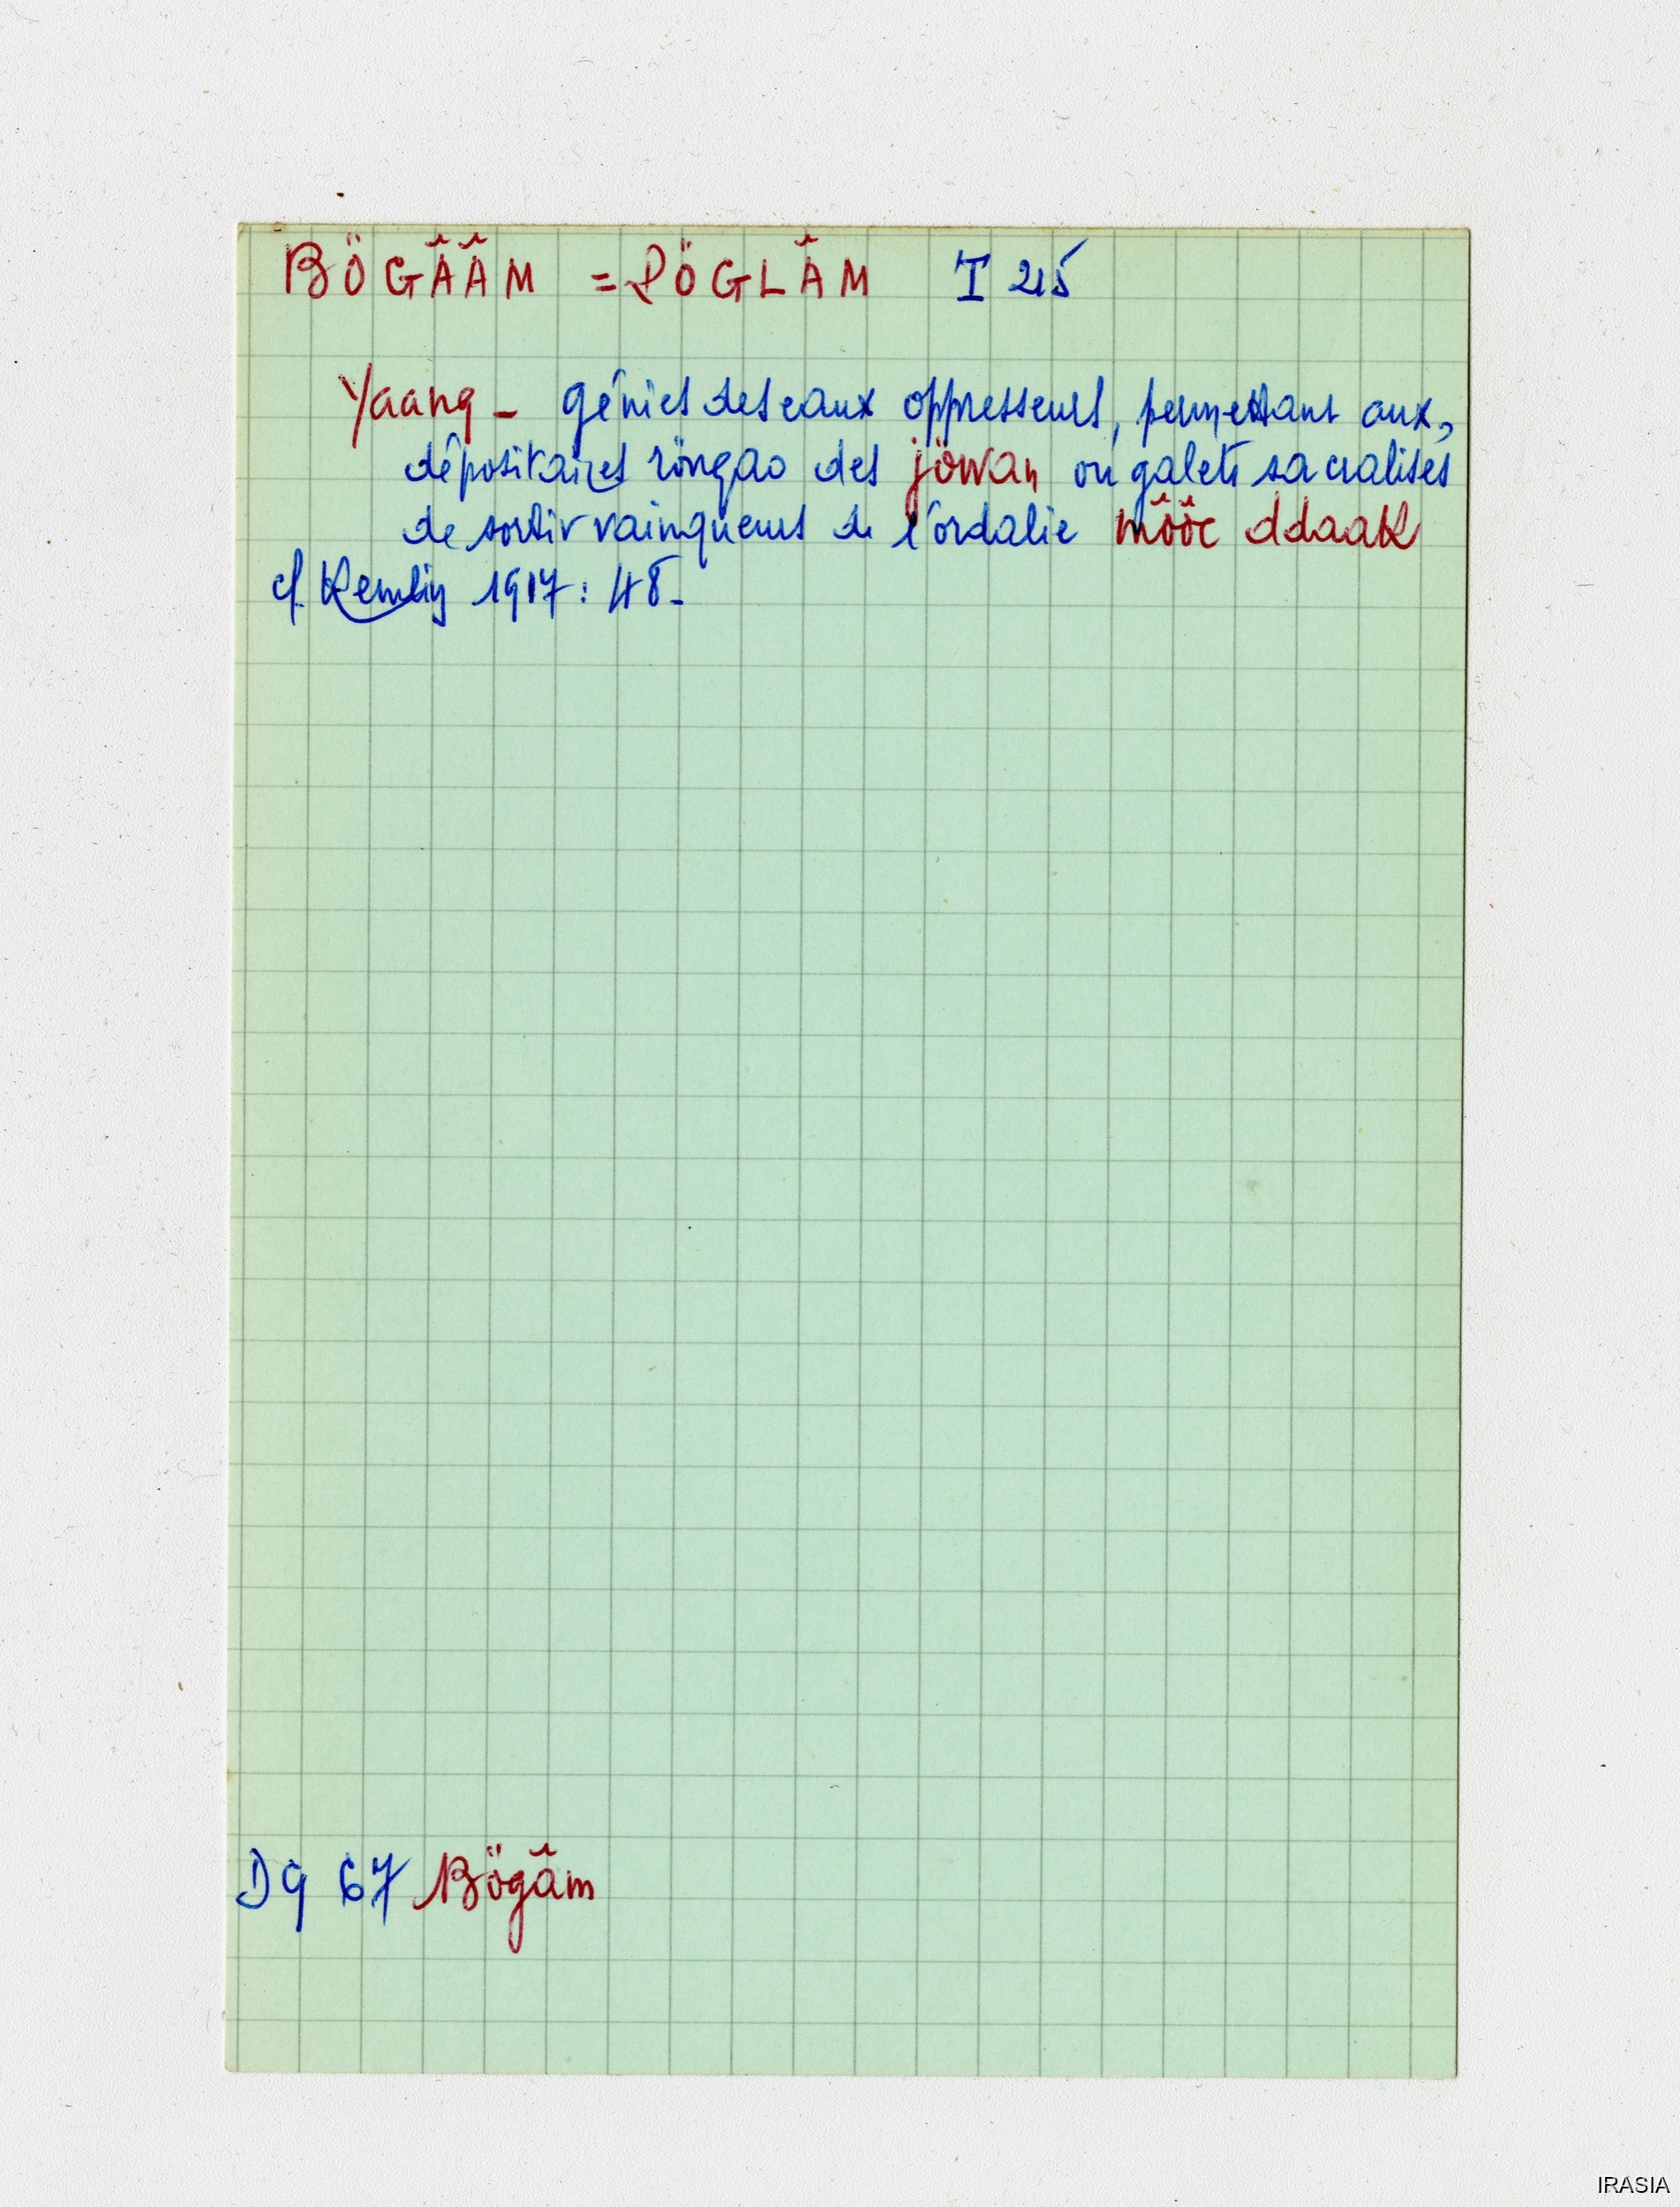 BÖGÂÂM = PÖGLÂM I 215
Yaang – génies des eaux oppresseurs, permettant aux,
dépositaires röngao des jöwan ou galets sacralisés
de sortir vainqueurs de l'ordalie môôc ddaak
cf. Kemlin 1917 : 48 –
DG 67 Bögâm
IRASIA